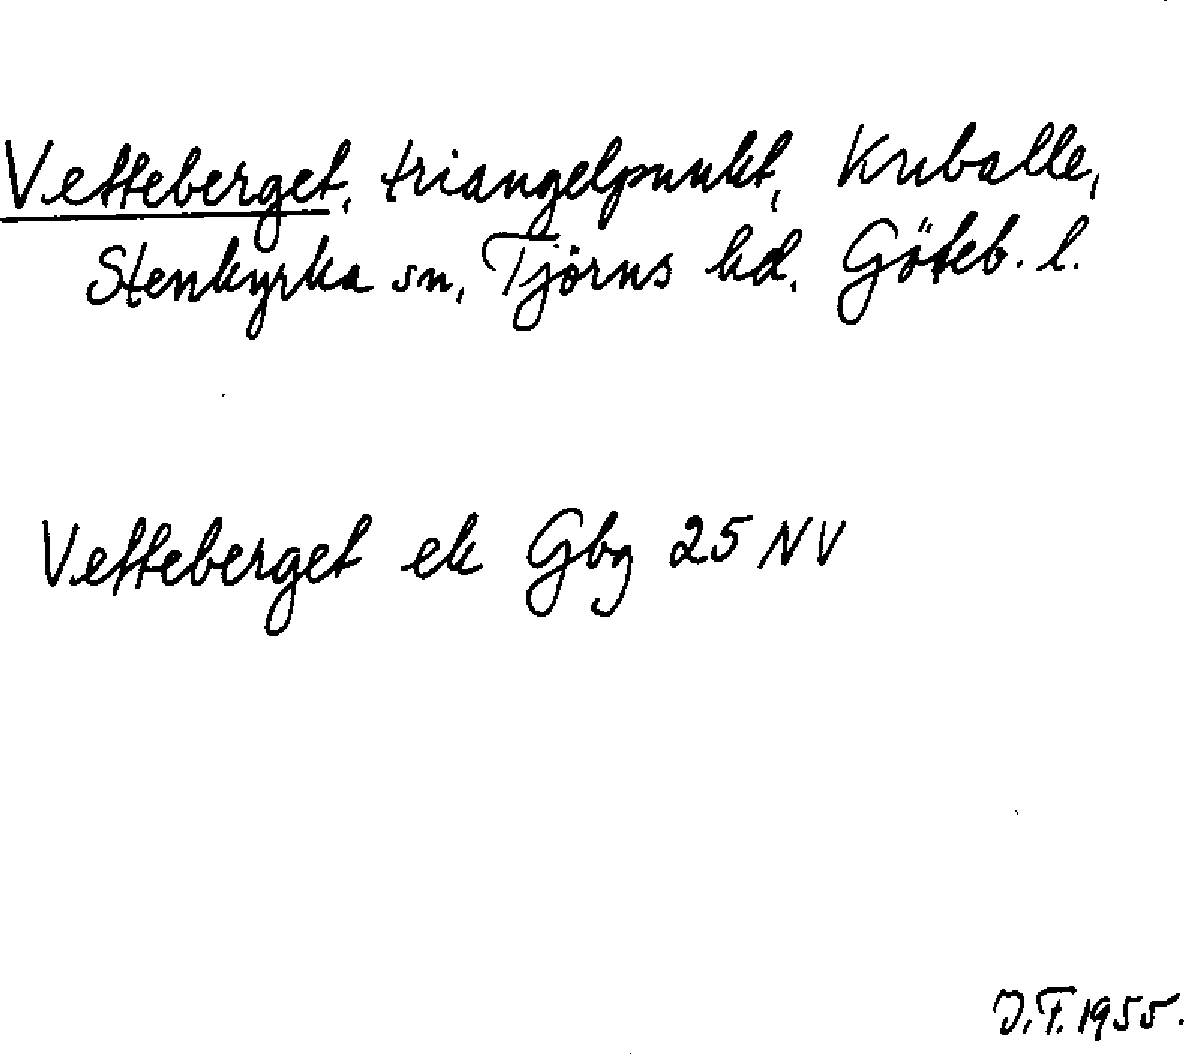 Vetteberget, triangelpunkt, Kuballe,
Stenkyrka sn, Tjörns hd. Göteb. l.
Vetteberget ek Gbg 25 NV
J.F. 1955.